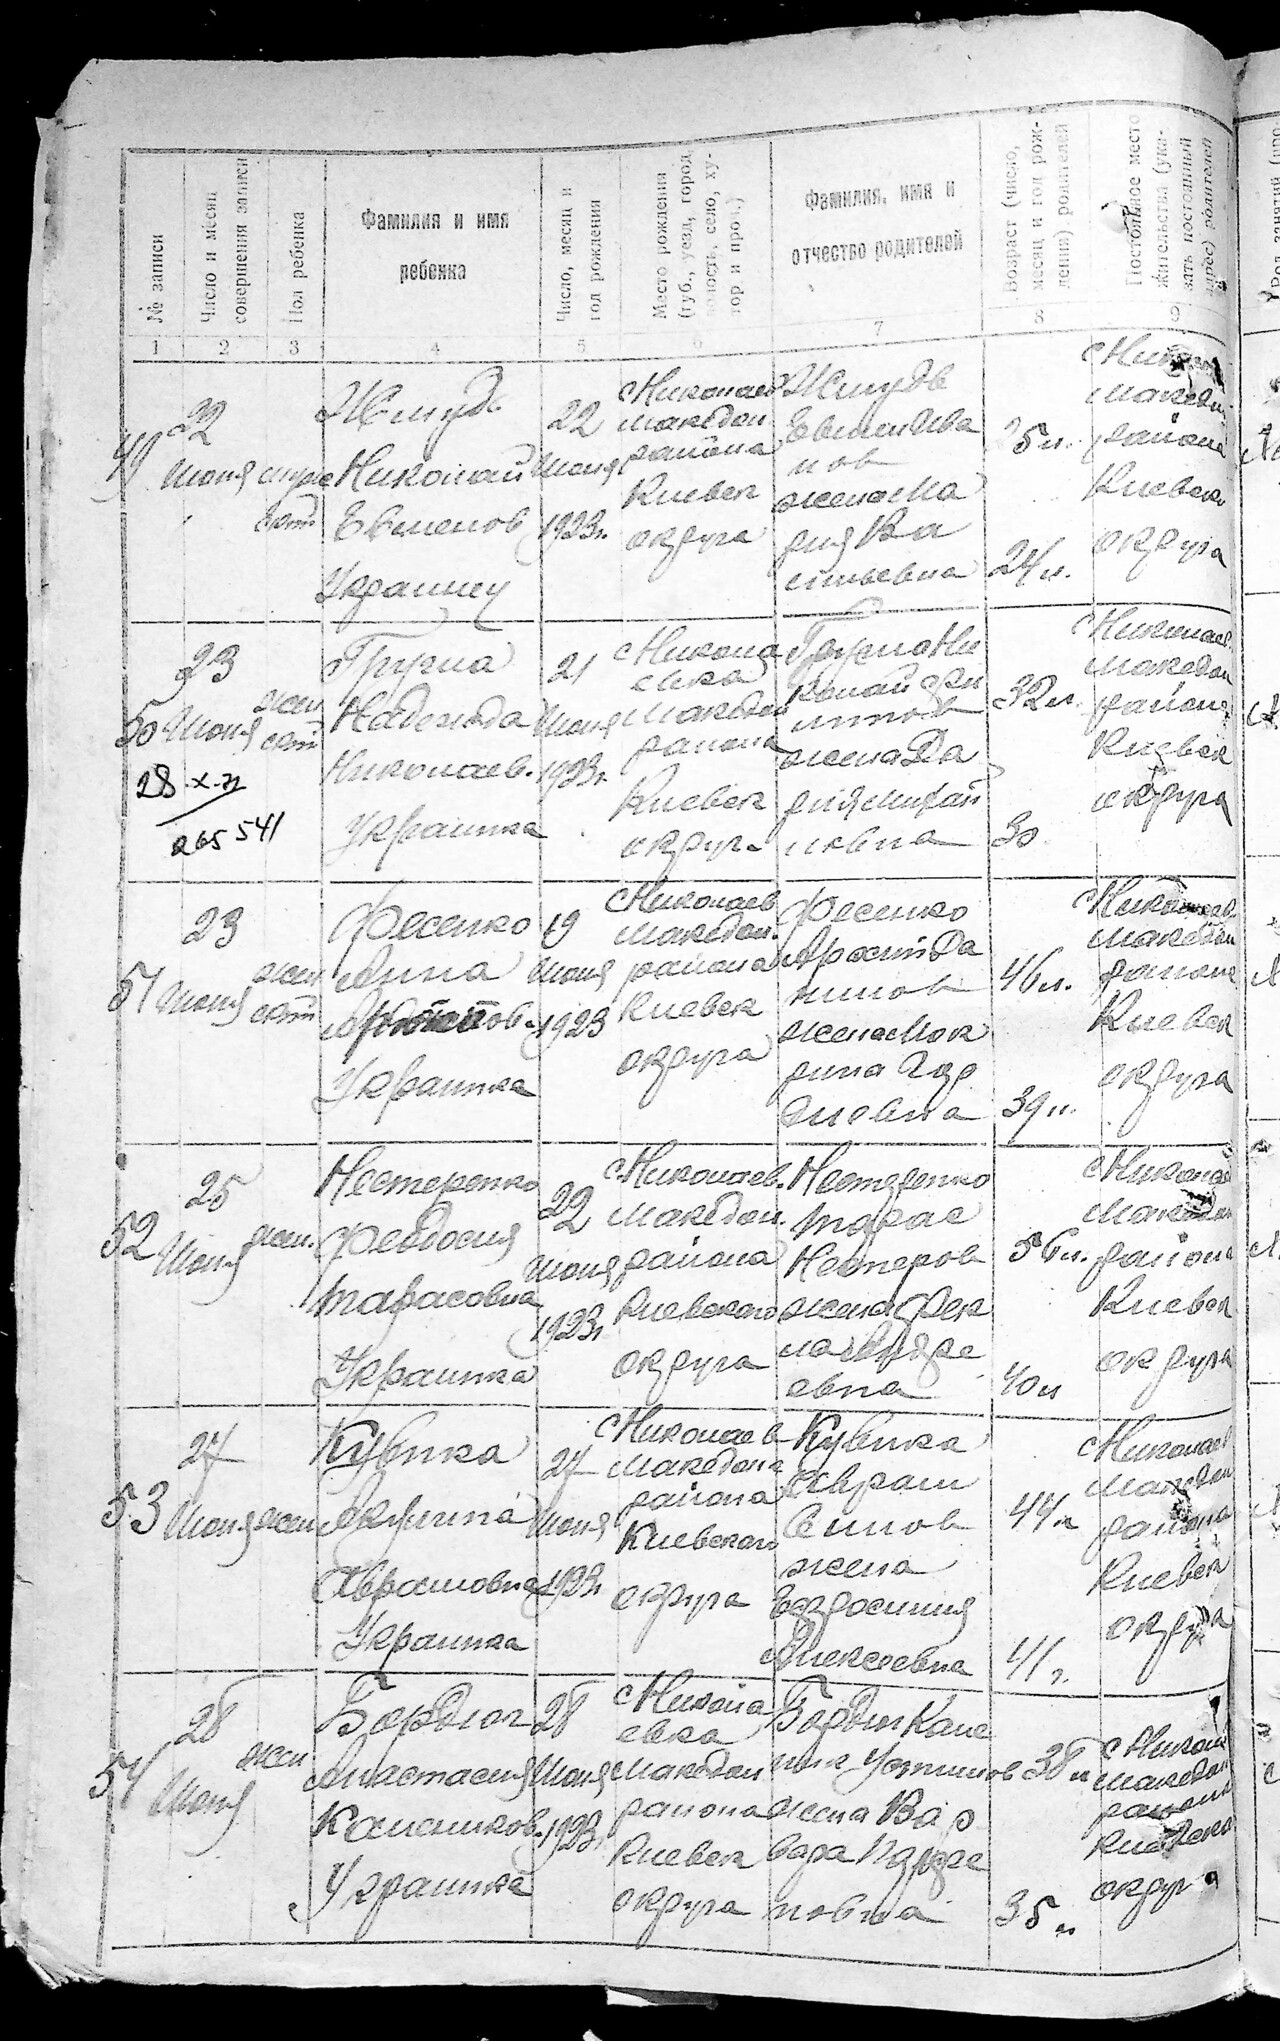 № записи
Число и месяц
совершения записи
Пол ребенка
Фамилия и имя
ребенка
Число, месяц и
год рождения
Место рождения
(губ., уезд, город
волость, село, ху-
тор и проч.)
Фамилия, имя и
отчество родителей
Возраст (число,
месяц и год рож-
дения) родителей
Постоянное место
жительства (ука-
зать постоянный
адрес) родителей
1
2
3
4
5
6
7
8
9
49
22
Июня
Николай
Евменов
Украинец
22
Июня
1923г.
с Николаев
Македон
района
Киевск
округа
Евмен Ива
нов
жена Ма
рия Ва
сильевна
24 л.
района
Киевск
округа
50
23
Июня
жен
ский
28.X.71
265541
Надежда
Николаев.
Украинка
21
Июня
1923г.
с Никола
евка
Македон
района
Киевск
округа
колай Фи
липов
жена Да
рия Михай
ловна
32 л.
30
с Николаев
Македон
района
Киевск
округа
51
23
Июня
жен
ский
Фесенко
Анна
Украинка
19
Июня
1923
с Николаев
Македон.
района
Киевск
округа
Фесенко
Архип Да
нилов
жена Мок
рина Гор
деевна
46 л.
39 л.
с Николаев
Македон
района
Киевск
округа
52
25
Июня
жен.
Нестеренко
Феодосия
Тарасовна
Украинка
22
Июня
1923г
с Николаев.
Македон.
района
Киевского
округа
Нестеренко
Тарас
Нестеров
жена Фек
ла Андре
евна
56 л.
40 л
с Николаев
Македон
района
Киевск
округа
53
27
Июня
жен
Кубика
Акулина
Аврамовна
Украинка
27
Июня
1923г
с Николаев
Македона
района
Киевского
округа
Кубика
Аврам
жена
Евфросиния
Алексеевна
44 л
41 г.
с Николаев
Македон
района
Киевск
округа
54
28
Июня
жен
Анастасия
Калеников.
Украинка
28
Июня
1923г
с Никола
евка
Македон
района
Киевск
округа
Кале
ник Устинов
жена Вар
вара Андре
38 л
35 л
с Никол
Македон
района
Киевск
округа